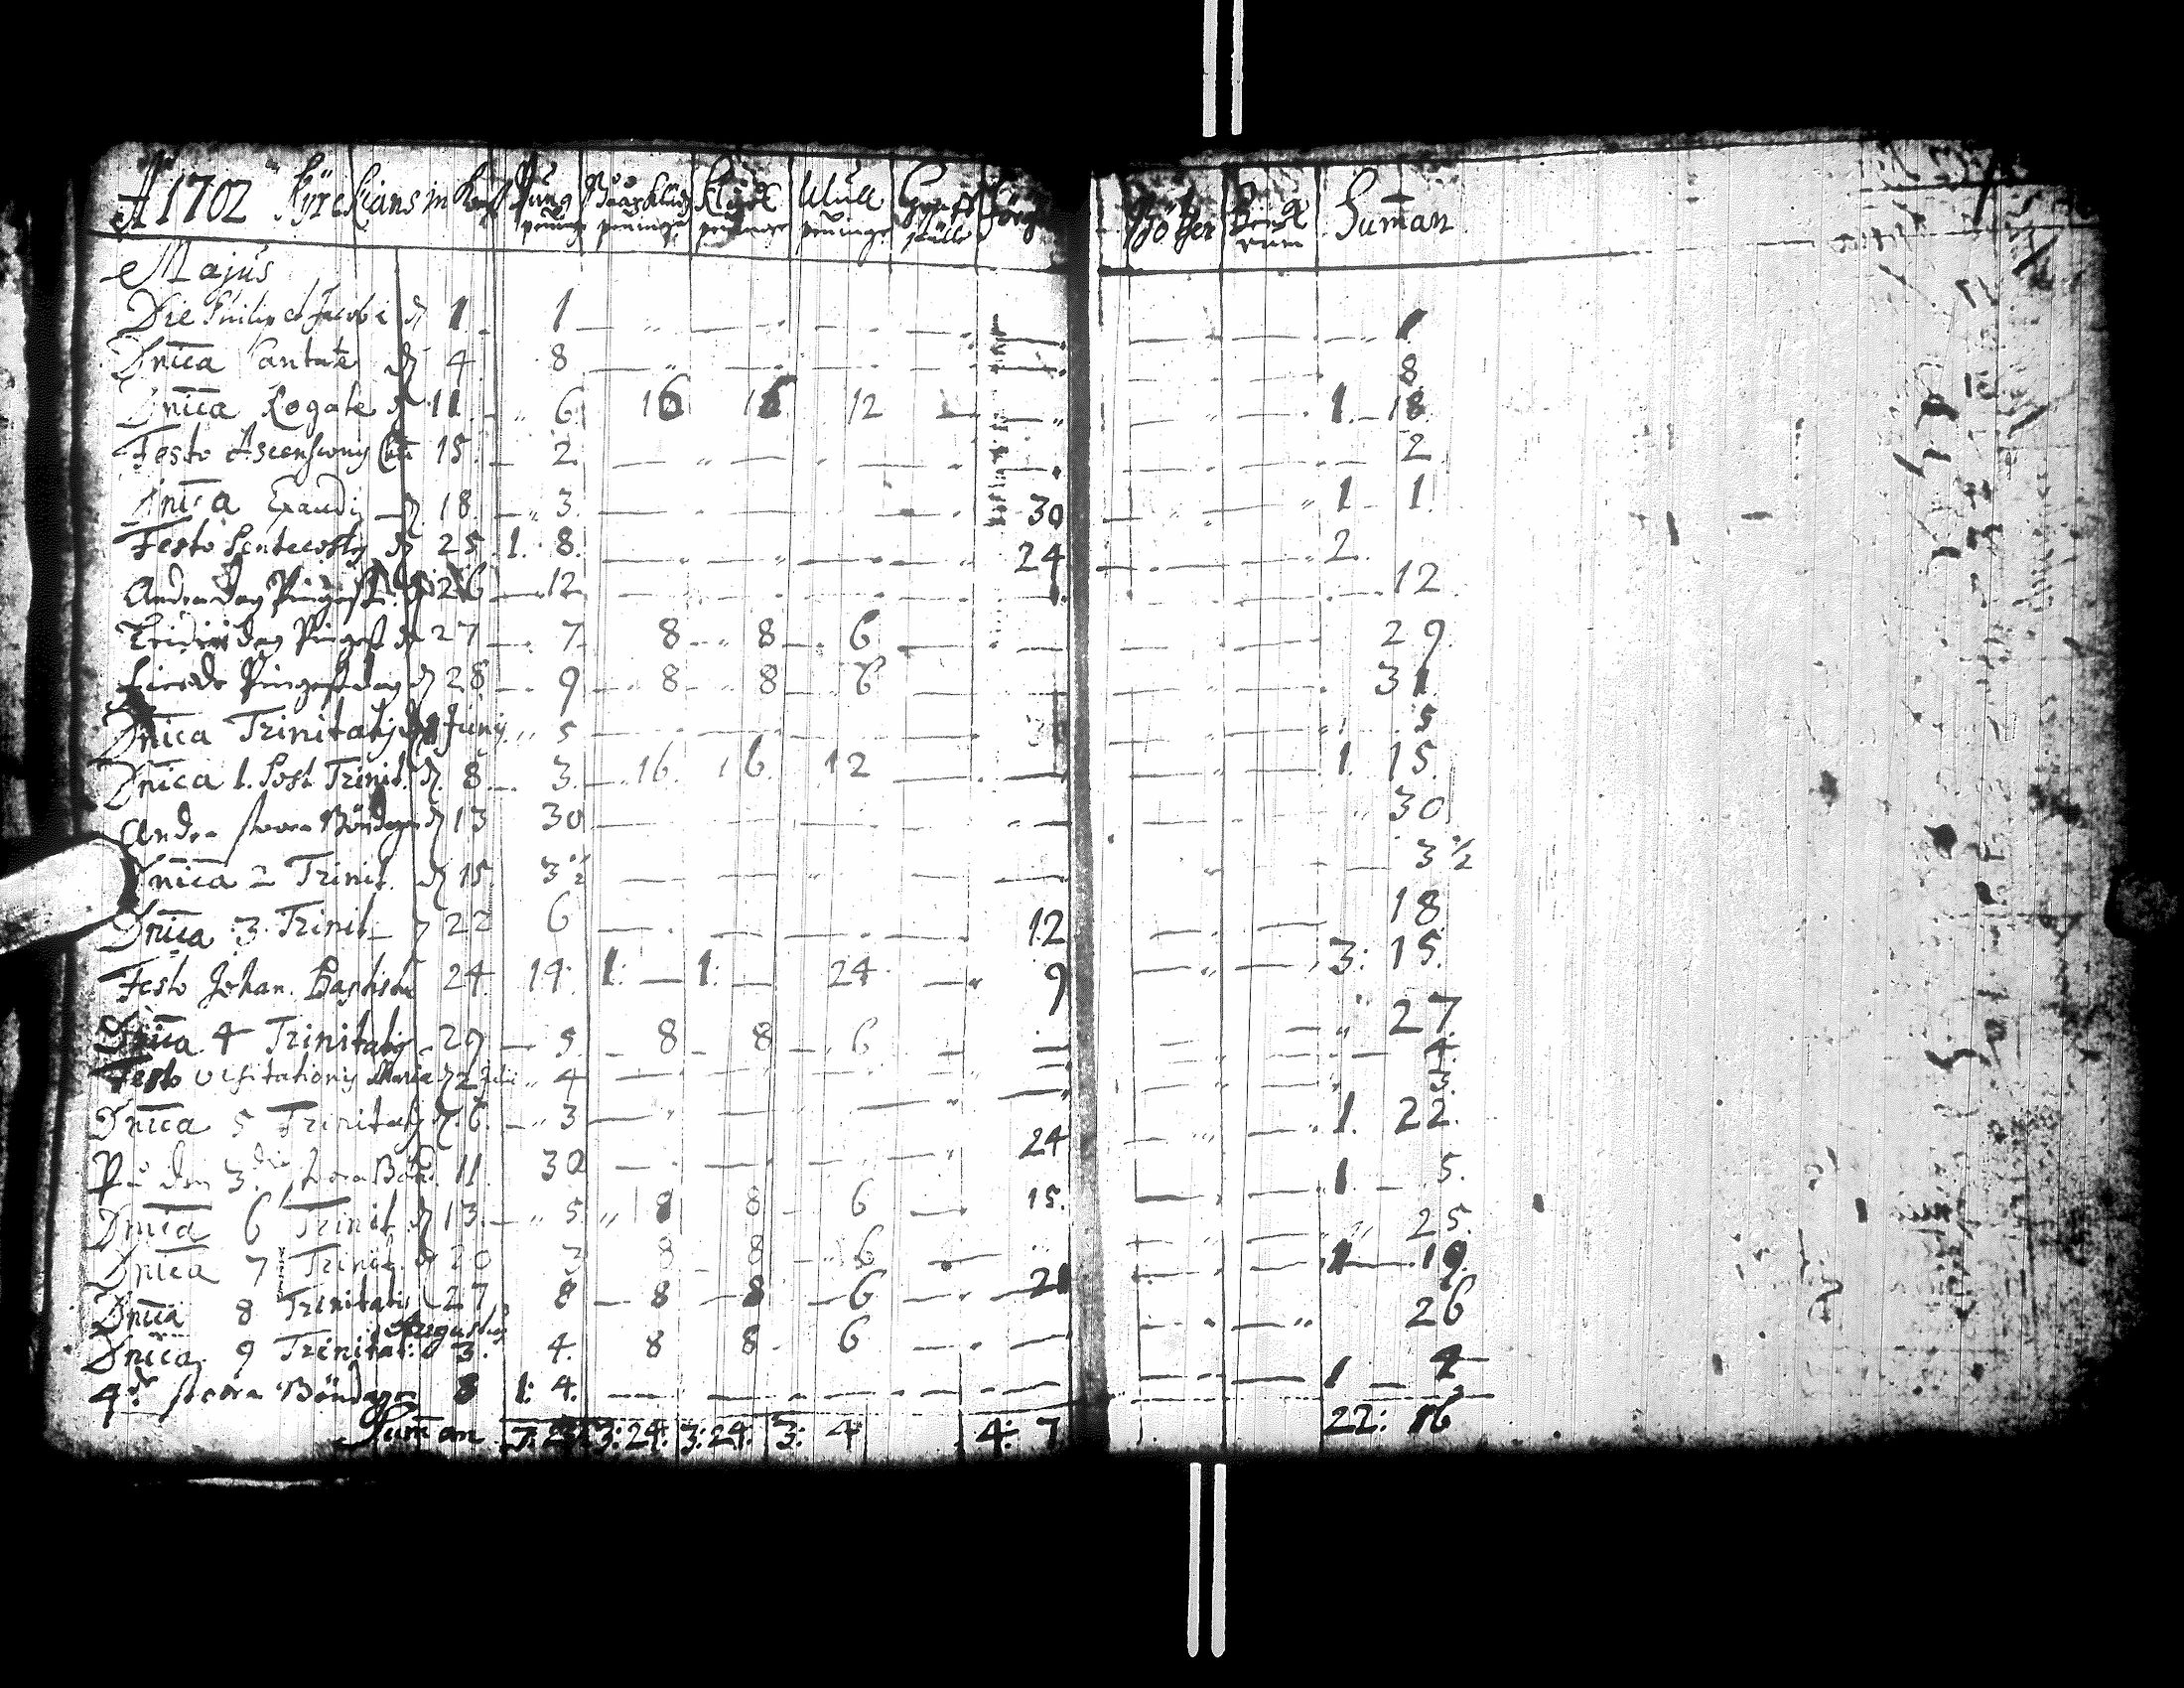 A 1702 Kyrckians in Pung peninge Baar kläd peninge Kläde peninge Mull peninge Graff ställe Böther Suman
Majus
Die Philip et Jacobi d 1 1 1
Dnica Cantate d 4 8 8
Dnica Rogate d 11 6 16 16 12 1 18
Festo Ascensionis 15 2 2
Dnica Exaudi d 18 3 30 1 1
Festo Pentecostes d 25 1 8 24 2
Andra dag Pingest d 26 12 12
Tridie dag Pingest d 27 7 8 8 6 29
Fierde Pingestdag d 28 9 8 8 6 31
Dnica Trinitatis d 1 Juny 5 5
Dnica 1. Post Trinit. d. 8 3 16 16 12 1 15
Andra stora Böndagen d 13 30 30
Dnica 2 Trinit. d 15 3½ 3½
Dnica 3 Trinit 22 6 12 18
Festo Johan. Baptistæ 24 14 1: 1: 24 9 3: 15
Dnica 4 Trinitatis 29 5 8 8 6 27
Festo visitationis Mariæ d 2 Julii 4 4
Dnica 5 Trinitatis d. 6 3 3
På den 3die stora Bönd. 11 30 24 1 22
Dnica 6 Trinit d 13 5 8 8 6 15 1 5
Dnica 7 Trinit. d 20 3 8 8 6 25
Dnica 8 Trinitatis 27 8 8 8 6 21 1 19
Augustus
Dnica 9 Trinitat: 3 4 8 8 6 26
4de stora Böndagen 8 1: 4 1 4
Suman 3: 24: 3: 24: 3: 4 4: 7 22: 16